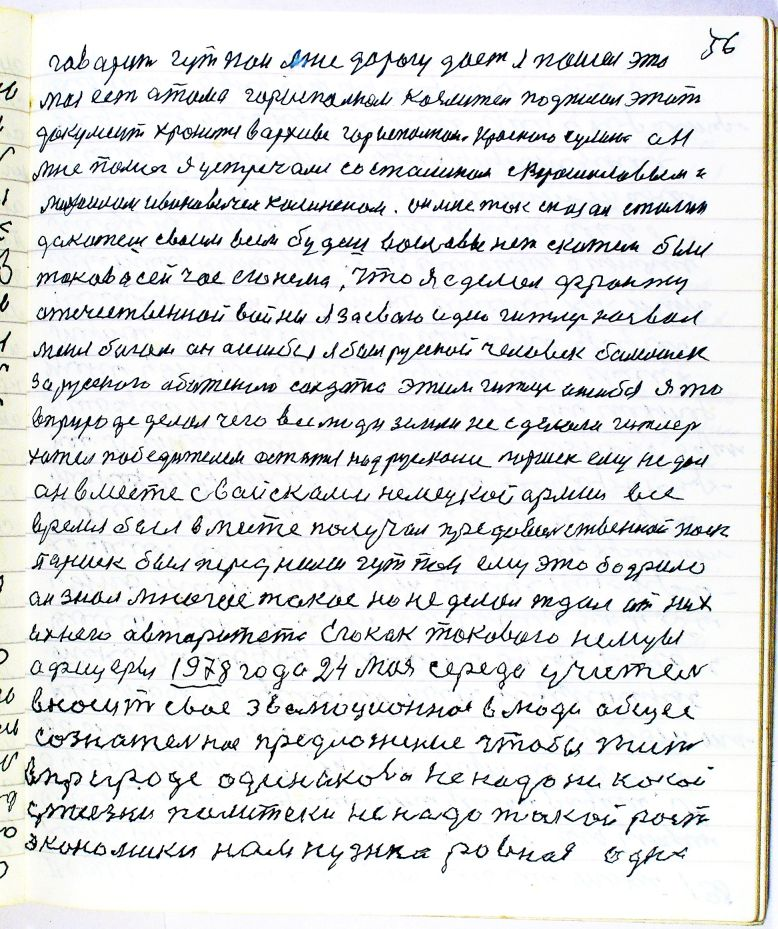 56
говарит гутнои мне дорогу дает я пошел это
мая ест атома горысполком комитет подписал этот
документ хронитя в архиве горысполком. Красного сулина он
мне помог я устречали со сталиным с Ворошиловым и
михоилом ивоновичем колиненом. он мне ток сказал столин
докожеш своим всем будеш воевавы нет скожем были
токова сейчас его нема, что я сделал фронту
отечественной войны я заевого одно гитлер назвал
меня богом он ошибся я был русской человек
за русского солдата этим гитлер ошибся я то
вприроде делал чего все люди земли не сделали гитлер
хотел победителем остатя над рускоми паршек ему не дал
он вместе с войсками немецкой армии все
время был вместе получал предовольственной паек
паршек был перед ними гут пой ему это бодрило
он знал многое такое но не делал ждал от них
ихнего автаритета его как токового немцы
афицеры 1978 года 24 мая середа учител
вносит свое эвалюционное в люди общее
сознателное предложение чтобы жит
вприроде одинаково не надо ни какой
жизни политеки не надо такой рост
экономики нам нужна ровная одна